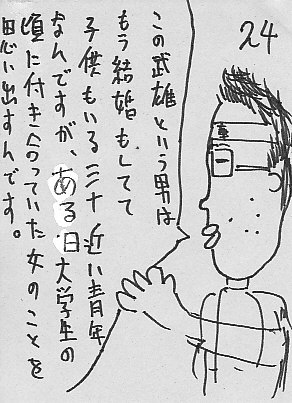 24
この武雄という男は
もう結婚もしてて
子供もいる三十近い青年
なんですが、ある日大学生の
頃に付き合っていた女のことを
思い出すんです。